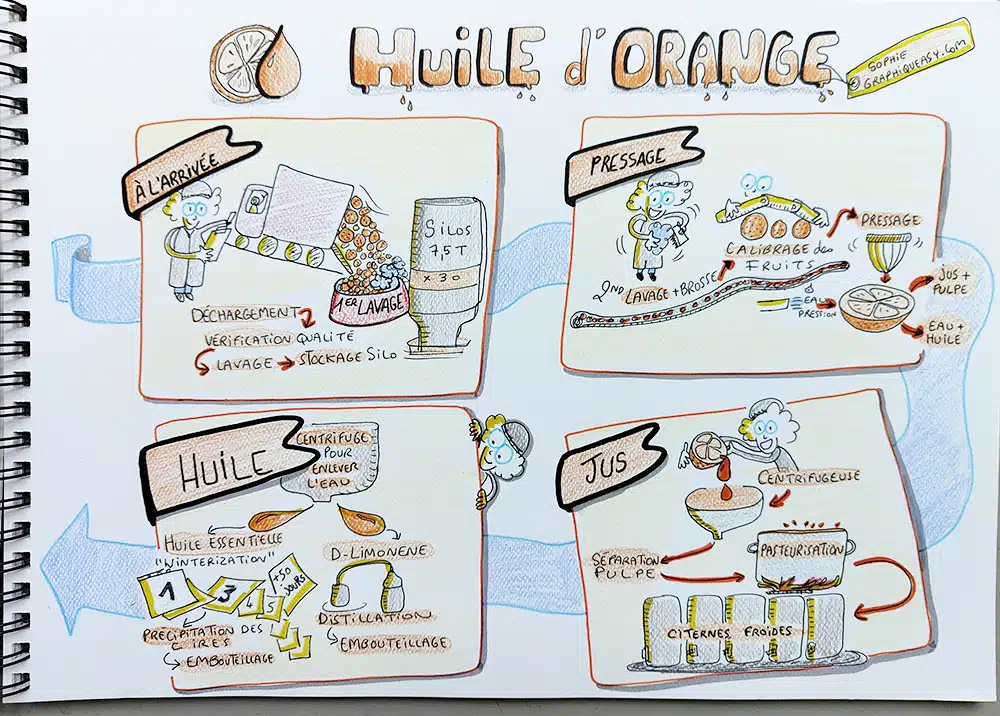 HUILE d'ORANGE
© SOPHIE
GRAPHIQUEASY.COM
À L'ARRIVÉE
SILOS
7,5 T
x 30
1ER LAVAGE
DÉCHARGEMENT
VÉRIFICATION QUALITÉ
LAVAGE → STOCKAGE SILO
PRESSAGE
CALIBRAGE des
FRUITS
PRESSAGE
2ND LAVAGE + BROSSE
EAU
PRESSION
JUS +
PULPE
EAU +
HUILE
JUS
CENTRIFUGEUSE
SÉPARATION
PULPE
PASTEURISATION
CITERNES FROIDES
HUILE
CENTRIFUGE
POUR
ENLEVER
L'EAU
HUILE ESSENTIELLE
"WINTERIZATION"
1 3 4 5
+50
JOURS
PRÉCIPITATION DES
CIRES
EMBOUTEILLAGE
D-LIMONENE
DISTILLATION
EMBOUTEILLAGE